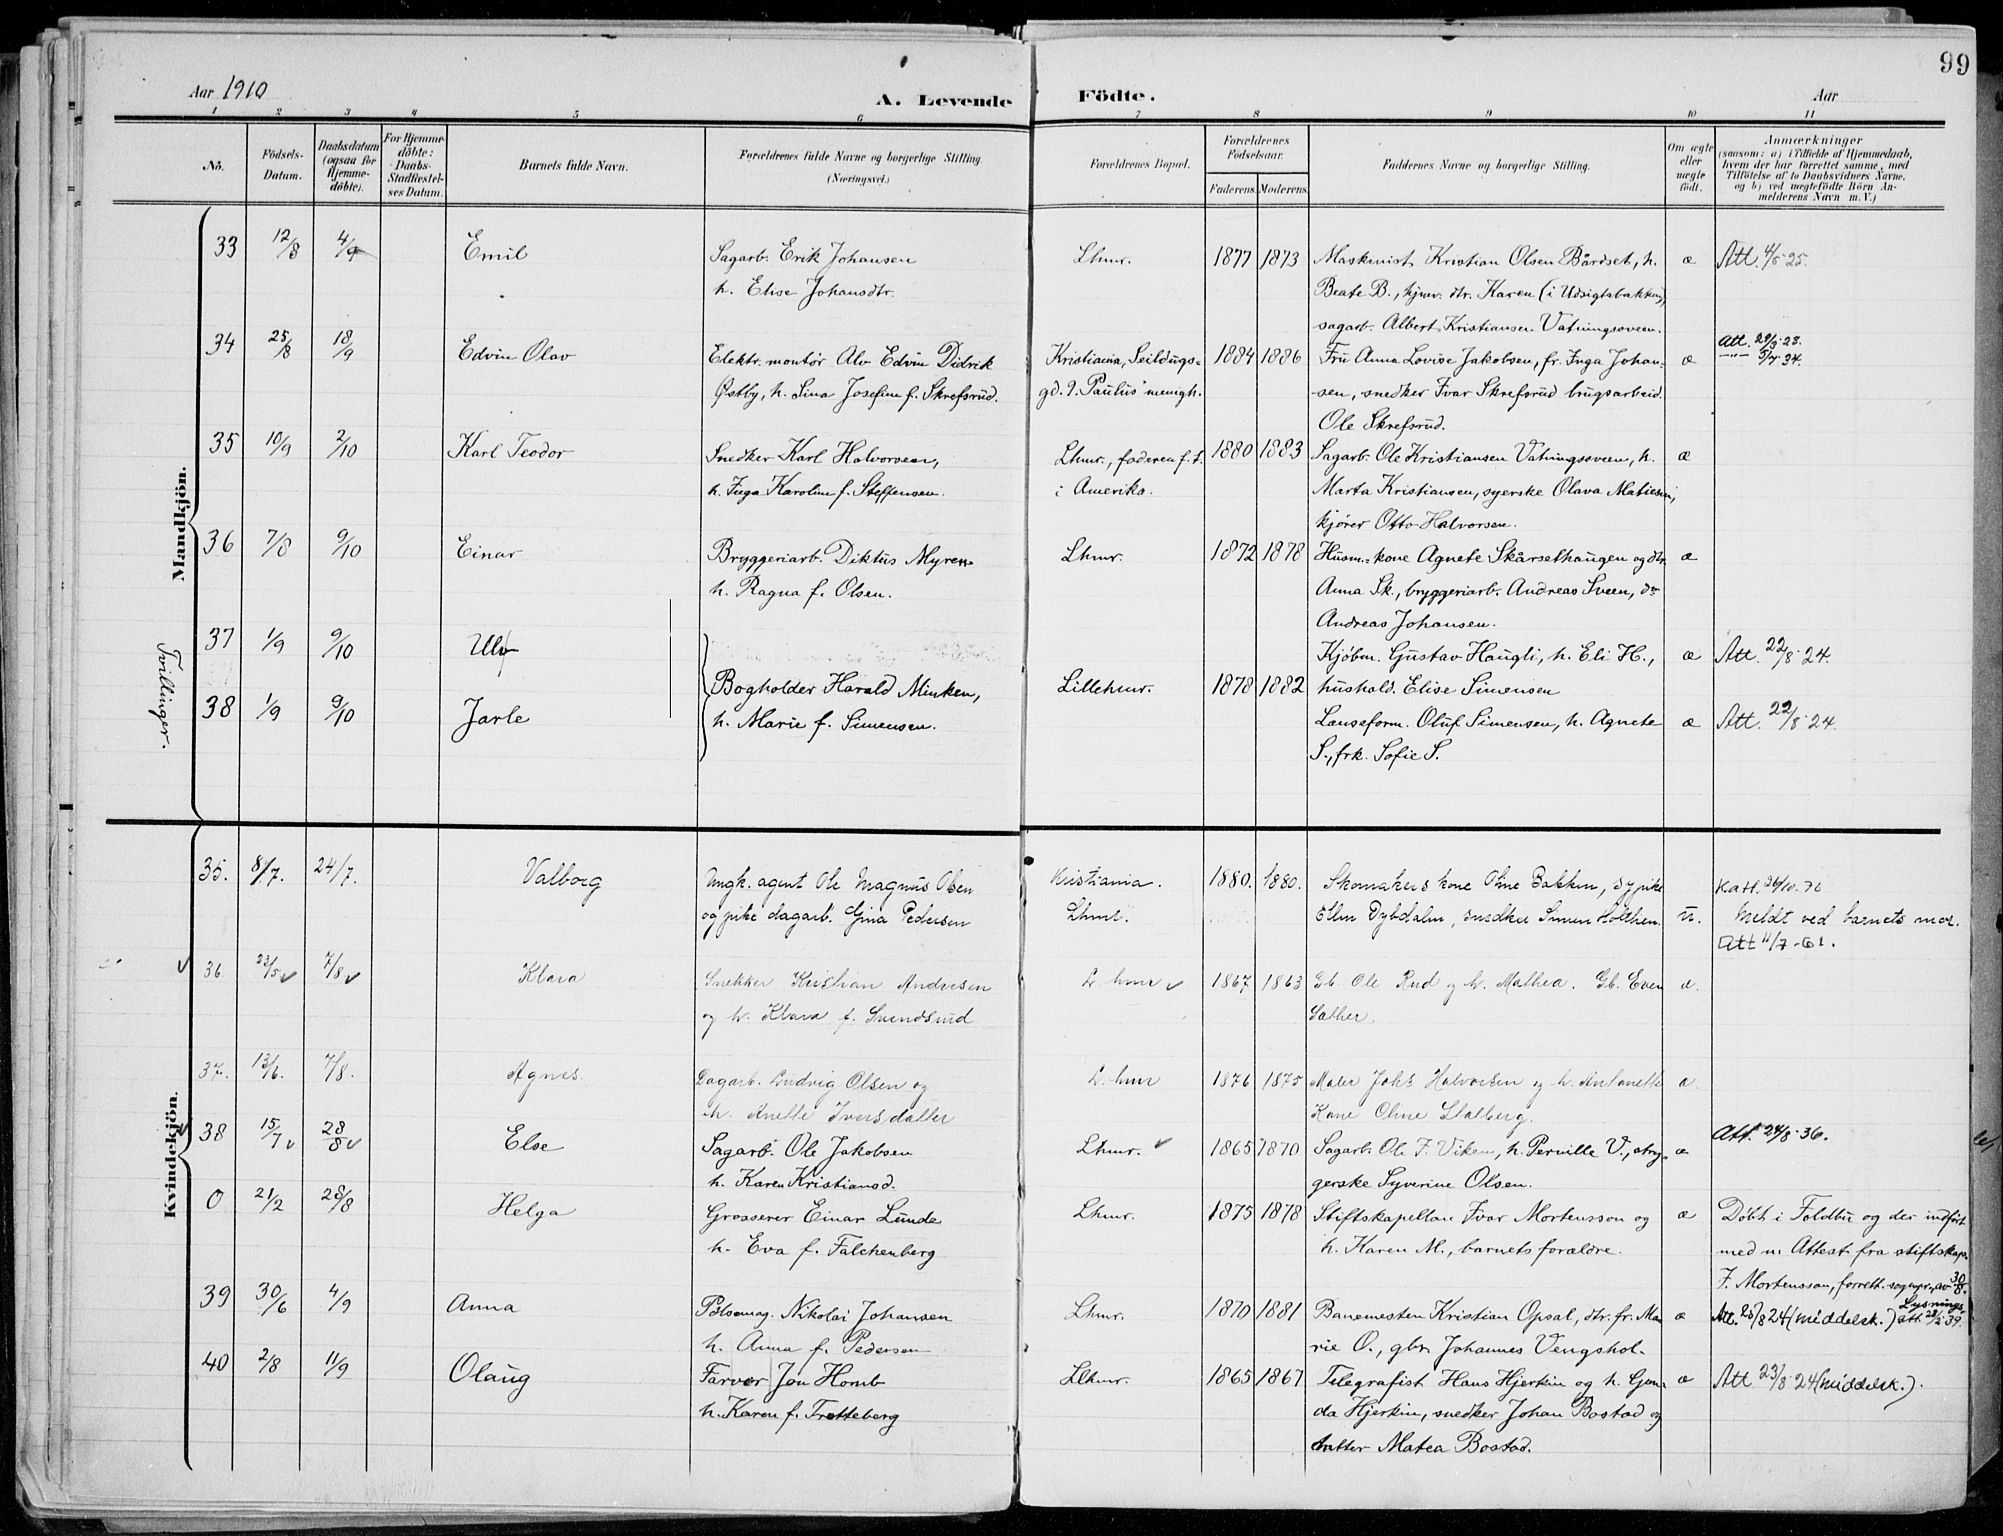 99
Aar 1910
A. Levende Födte.
Aar
1 2 3 4 5 6 7 8 9 10 11
Nö.
Födsels-Datum.
Daabsdatum (ogsaa for Hjemme-döbte).
For Hjemme-döbte: Daabs-Stadfæstel-ses Datum.
Barnets fulde Navn.
Forældrenes fulde Navne og borgerlige Stilling. (Næringsvei.)
Forældrenes Bopæl.
Forældrenes Födselsaar.
Faderens. Moderens.
Faddernes Navne og borgerlige Stilling.
Om ægte eller uægte födt.
Anmærkninger (saasom: a) i Tilfælde af Hjemmedaab, hvem der har forrettet samme, med Tilföielse af to Daabsvidners Navne, og b) ved uægtefödte Börn An-melderens Navn m. V.)
Mandkjön.
33 12/8 4/9 Emil Sagarb. Erik Johansen Lhmr. 1877 1873 Maskinist Kristian Olsen Bårdset, h. æ Att. 4/5 25.
h. Elise Johansdtr. Beate B., hjmv. dtr. Karen (i Udsigtsbakken),
sagarb. Albert Kristiansen Vatningsveen.
34 25/8 18/9 Edvin Olav Elektr. montör Alv Edvin Didrik Kristiania, Seildugs- 1884 1886 Fru Anna Lovise Jakobsen, fr. Inga Johan- æ Att. 29/5 23.
—"— 5/7 34.
Østby, h. Lina Josefine f. Skrefsrud. gd. 9. Paulus' menigh. sen, snedker Ivar Skrefsrud brugsarbeid.
Ole Skrefsrud.
35 10/9 2/10 Karl Teodor Snedker Karl Halvorsen, Lhmr., faderen f. t. 1880 1883 Sagarb. Ole Kristiansen Vatningsveen, h. æ
h. Inga Karoline f. Steffensen. i Amerika. Marta Kristiansen, syerske Olava Matiesen,
kjörer Otto Halvorsen.
36 7/8 9/10 Einar Bryggeriarb. Diktus Myren Lhmr. 1872 1878 Husm.-kone Agnete Skårsethaugen og dtr. æ
h. Ragna f. Olsen. Anna Sk., bryggeriarb. Andreas Sveen, do
Andreas Johansen.
Tvillinger.
37 1/9 9/10 Ulv Kjöbm. Gustav Haugli, h. Eli H., æ Att. 22/8 24.
Bogholder Harald Minken, Lillehmr. 1878 1882 hushold. Elise Simensen
38 1/9 9/10 Jarle h. Marie f. Simensen. Lænseform. Oluf Simensen, h. Agnete æ Att. 22/8 24.
S., frk. Sofie S.
Kvindekjön.
35. 8/7. 24/7. Valborg Ungk. agent Ole Magnus Olsen Kristiania. 1880. 1880. Skomakers kone Oline Bakken, sypike
og pike dagarb. Gina Pedersen Lhmr. Elm Dybdalm, snedker Simen Holthen. u. Meldt ved barnets mor.
Att 11/7-61.
36 23/5 7/8 Klara Snekker Kristian Andresen L.hmr 1867 1863 Gb. Ole Rud og h. Mathea. Gb. Even æ.
og h. Klara f. Svendsrud Sæther.
37. 13/6. 7/8. Agnes. Dagarb. Ludvig Olsen og L.hmr 1876 1875 Maler Johs Halvorsen og h. Antonette æ.
h. Anette Iversdatter Kone Oline Stalberg.
38 15/7 28/8 Else Sagarb. Ole Jakobsen Lhmr. 1865 1870 Sagarb. Ole F. Viken, h. Pernille V., stry- æ Att. 24/8 36.
h. Karen Kristiansd. gerske Syverine Olsen.
0 21/2 28/8 Helga Grosserer Einar Lunde Lhmr. 1875 1878 Stiftskapellan Ivar Mortensson og æ Döbt i Foldbu og der indfört
h. Eva f. Falchenberg h. Karen M., barnets forældre. med n. Attest fra stiftskap.
I. Mortensson, forrett. sognepr., av 30/8.
39 30/6 4/9 Anna Pölsemag. Nikolai Johansen Lhmr. 1870 1881 Banemesteren Kristian Opsal, dtr. fr. Ma- æ Att. 25/8 24 (middelsk.) Lysnings-att. 28/2 39.
h. Anna f. Pedersen rie O., gbr. Johannes Vengshol.
40 2/8 11/9 Olaug Farver Jon Homb Llhmr. 1865 1867 Telegrafist Hans Hjerkin og h. Gun- æ Att 23/8 24 (middelsk.).
h. Karen f. Tretteberg da Hjerkin, snedker Johan Bostad og
datter Matea Bostad.